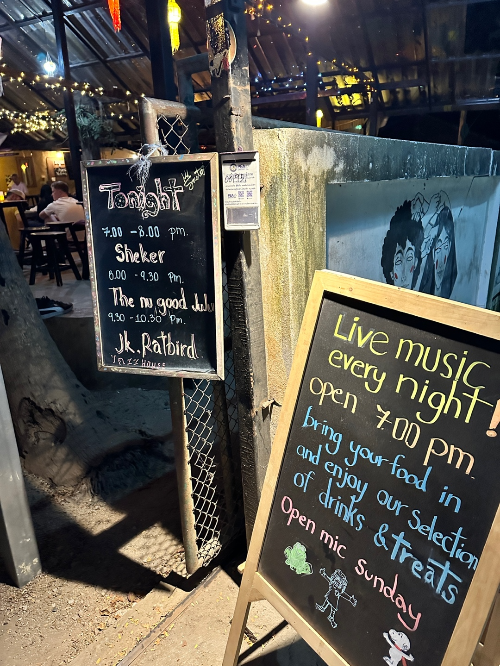 Tonight
7.00 -8.00 pm.
Sheker
8.00 - 9.30 pm.
The nu good JuJu
9.30 - 10.30 pm.
Jk.Ratbird
Live music
every night!
open 7.00 pm.
bring your food in
and enjoy our selection
of drinks & treats
Open mic sunday